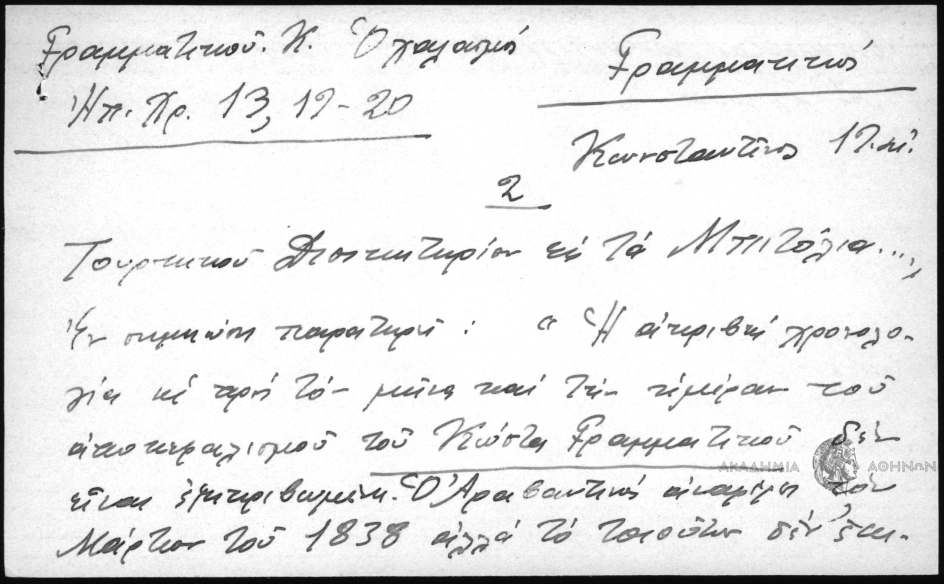 Γραμματικοῦ. Κ. Ὁ χαλασμός
Ἠπ. Χρ. 13, 19-20
Γραμματικός
Κωνσταντῖνος 19. αἰ.
2
Τουρκικοῦ Διοικητηρίου εἰς τά Μπιτόλια...,
Ἐν σημειώσει παρατηρεῖ : " Ἡ ἀκριβής χρονολο-
γία ὡς πρός τόν μῆνα καί τήν ἡμέραν τοῦ
ἀποκεφαλισμοῦ τοῦ Κώστα Γραμματικοῦ δέν
εἶναι ἐξηκριβωμένη. Ὁ Ἀραβαντινός ἀναφέρει τόν
Μάρτιον τοῦ 1838 ἀλλά τό τοιοῦτον δέν
ΑΚΑΔΗΜΙΑ ΑΘΗΝΩΝ